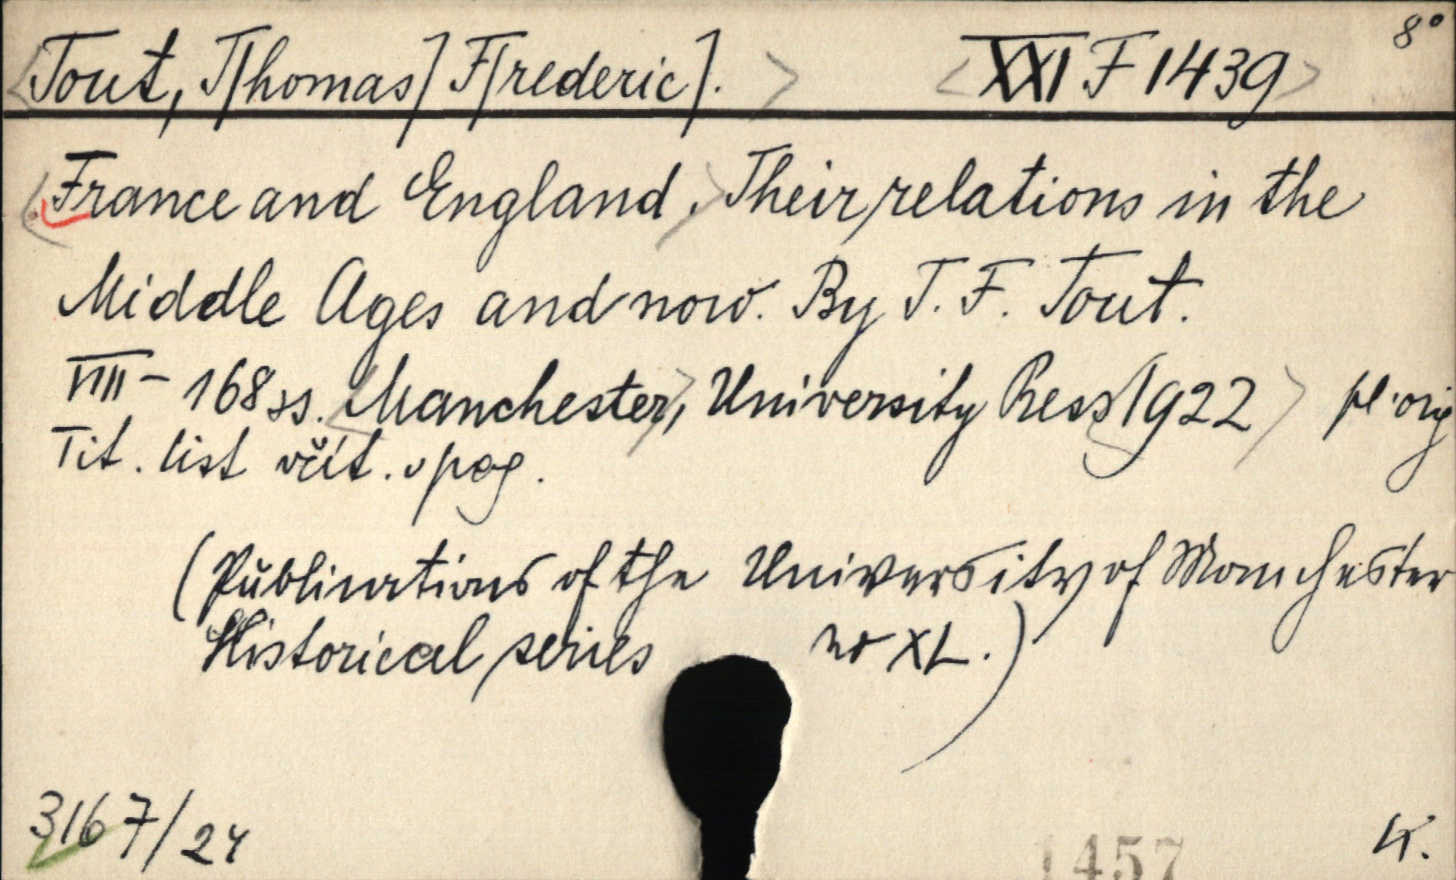 8°
<Tout, T[homas] F[rederic].> <XXI F 1439>
<France and England.> Their relations in the
Middle Ages and now. By T. F. Tout.
VIII - 168 ss. <Manchester>, University Press <1922> pl. orig
Tit. list včít. v pag.
(Publications of the University of Manchester
Historical series no XL.)
3167/24
1457
K.